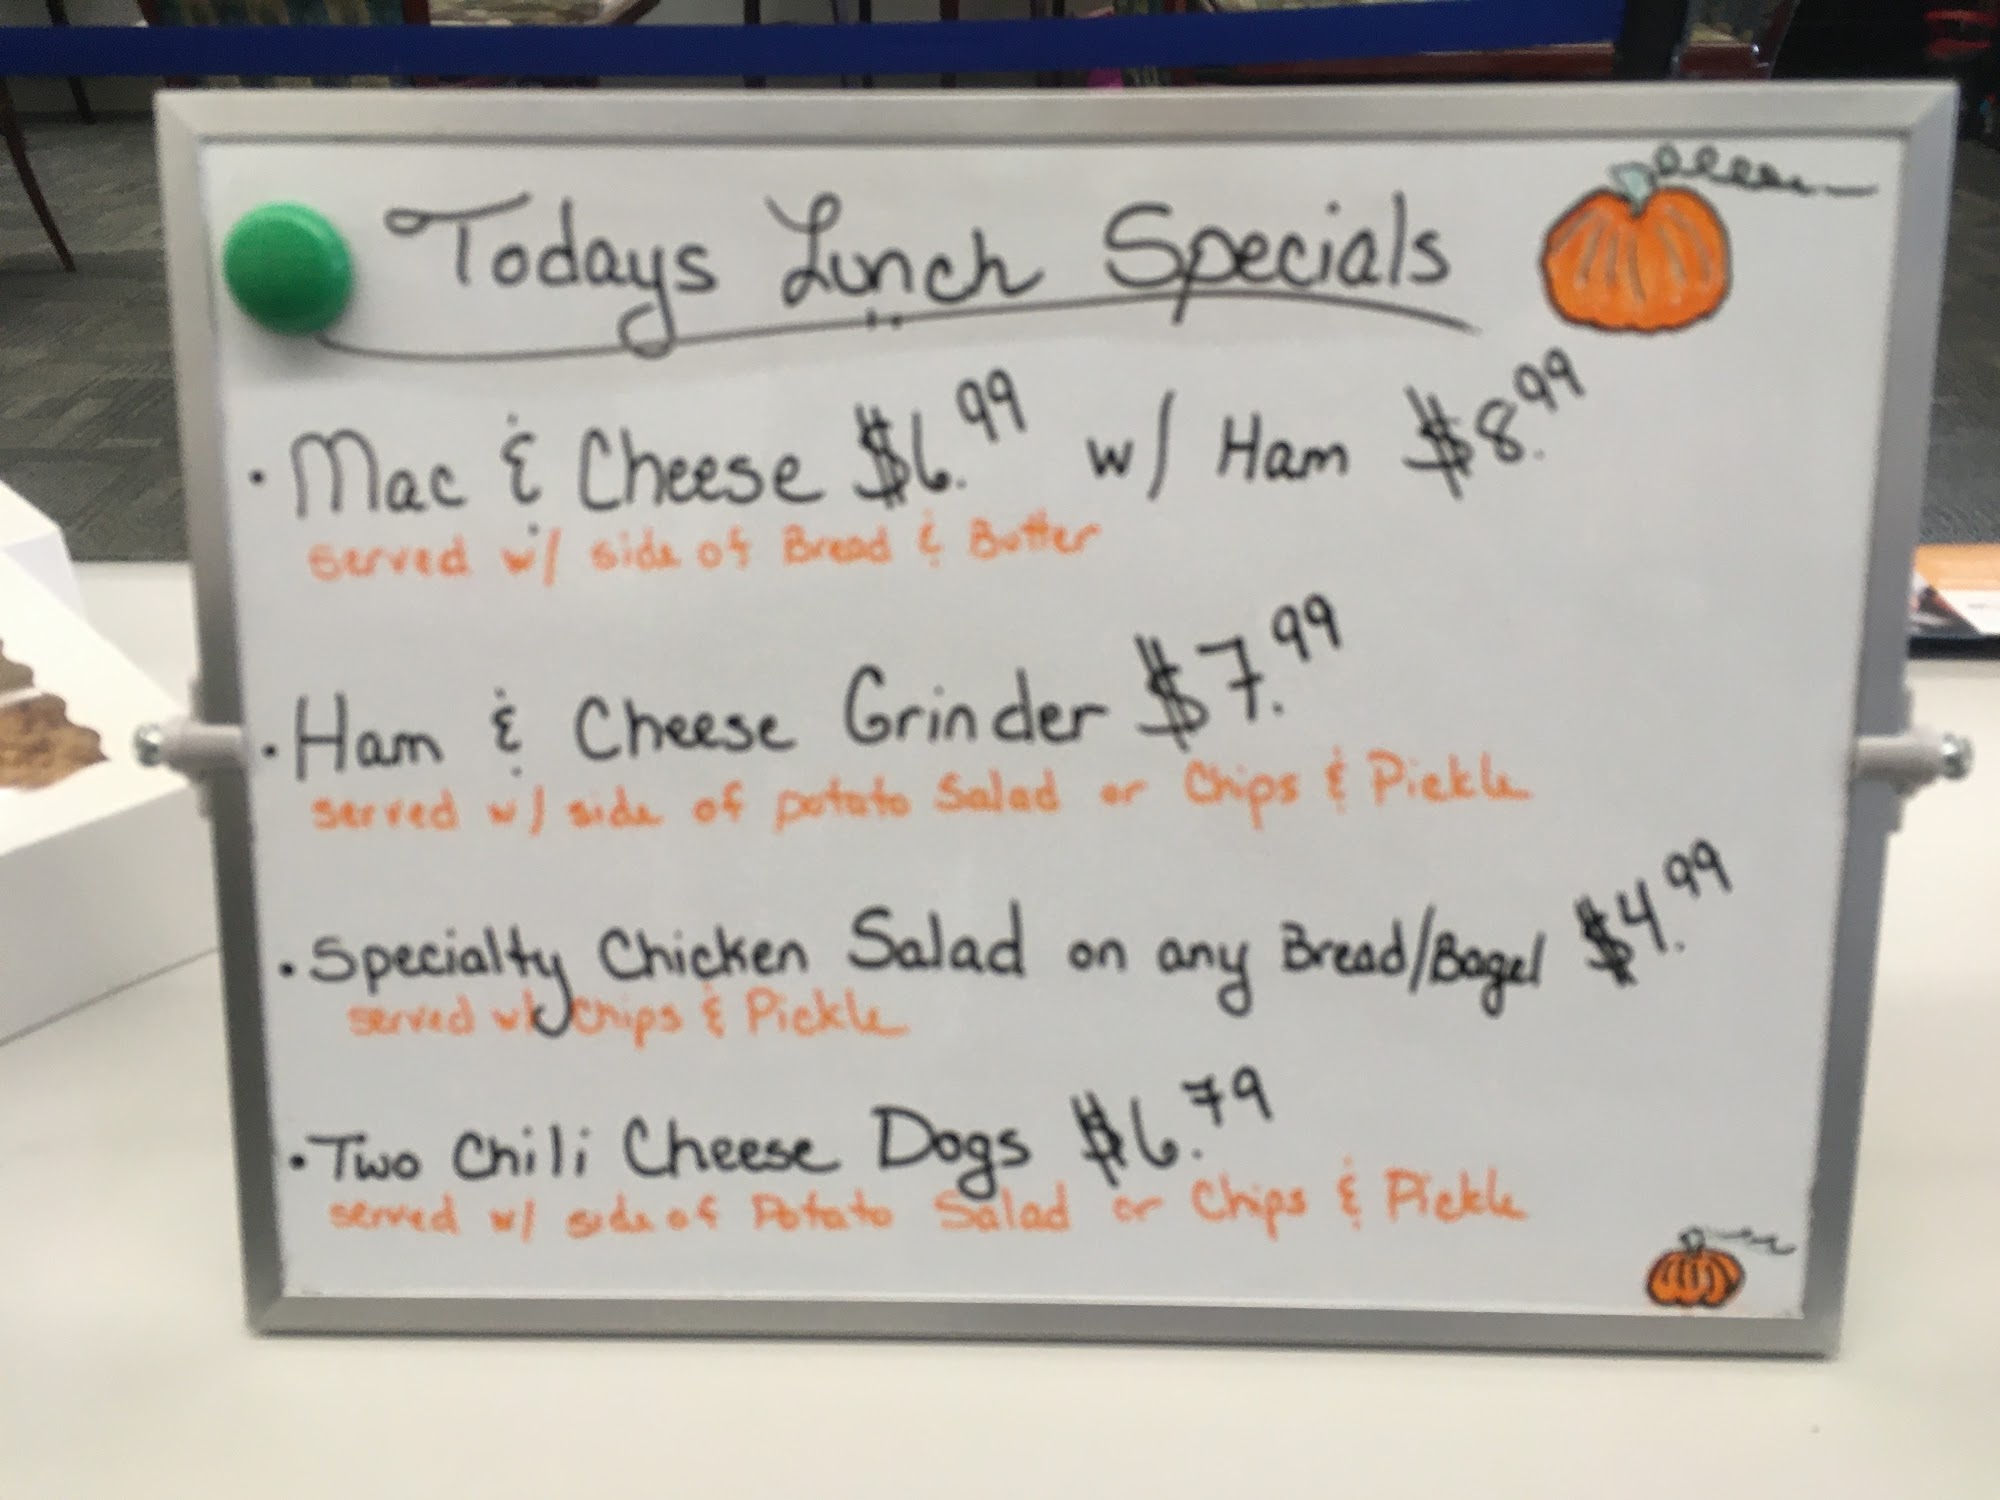 Todays Lunch Specials
• Mac & Cheese $6.99 w/ Ham $8.99
served w/ side of Bread & Butter
• Ham & Cheese Grinder $7.99
served w/ side of potato Salad or Chips & Pickle
• Specialty Chicken Salad on any Bread/Bagel $4.99
served w/ Chips & Pickle
• Two Chili Cheese Dogs $6.79
served w/ side of Potato Salad or Chips & Pickle